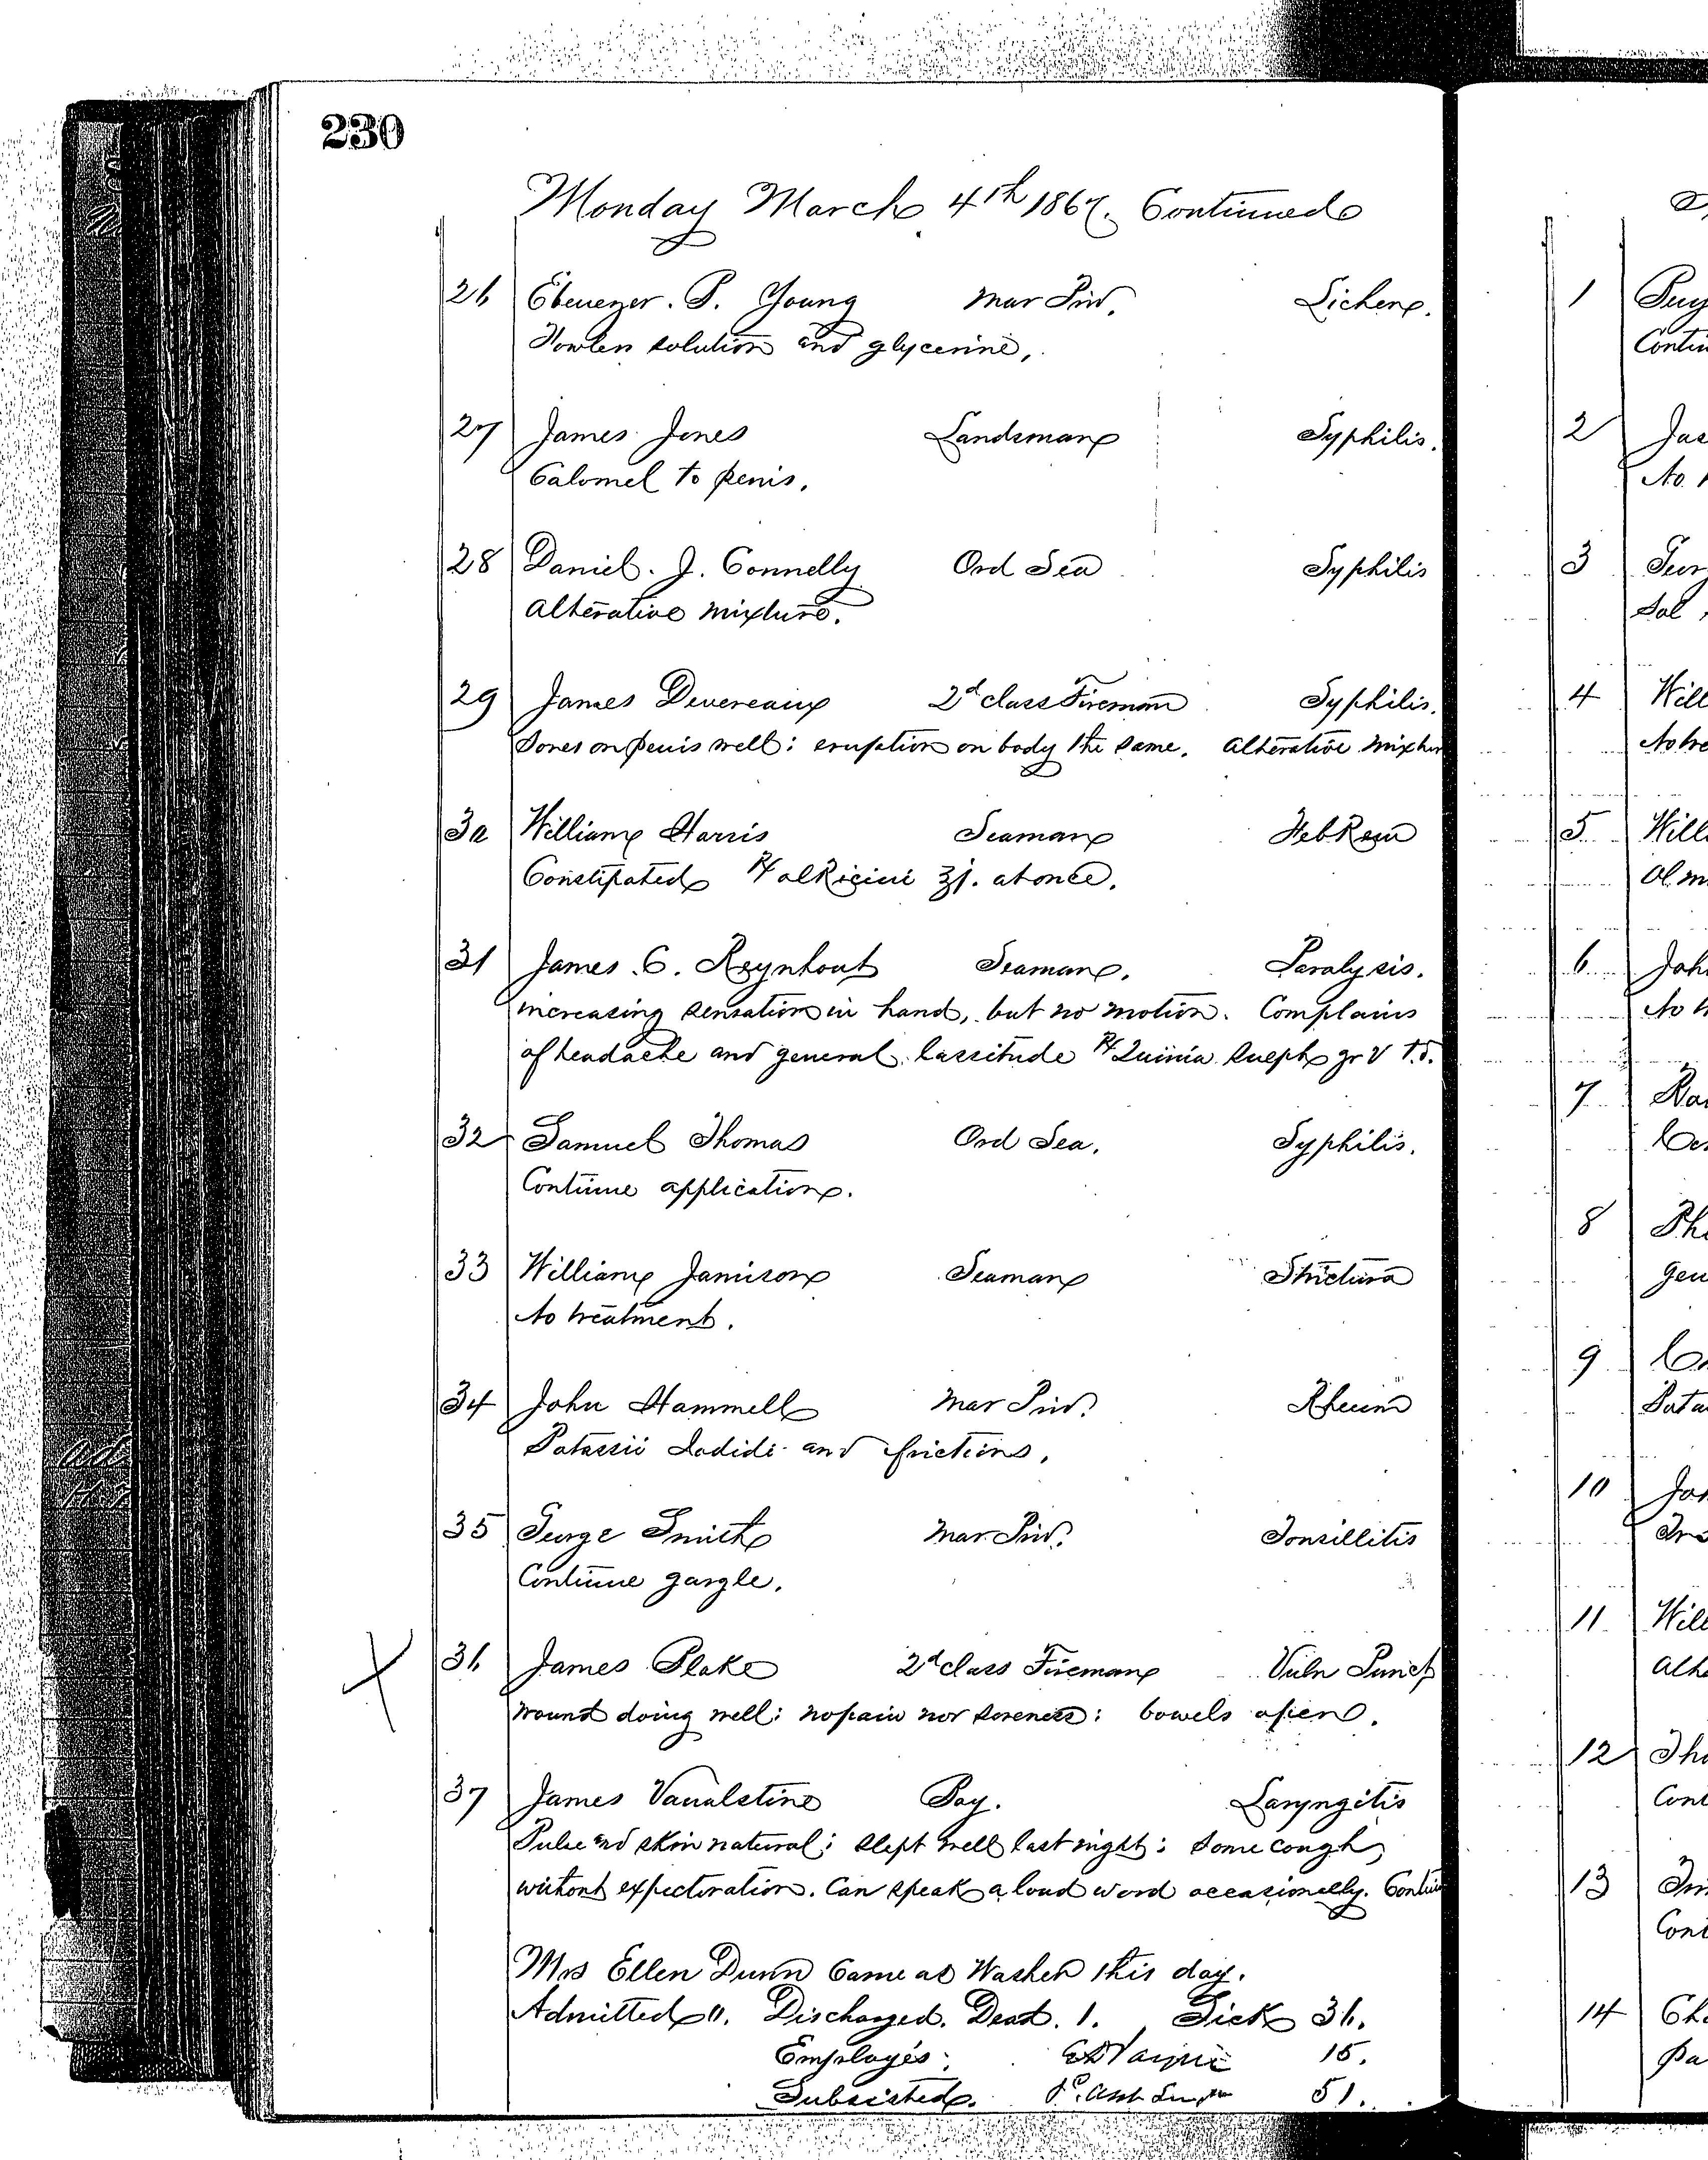 230
Monday March 4th 1867. Continued
26 Ebenezer. P. Young Mar Priv. Lichen.
Fowlers solution and glycerine,
27 James Jones Landsman Syphilis.
Calomel to penis.
28 Daniel. J. Connelly Ord Sea Syphilis
Alterative mixture.
29 James Devereaux 2d class Fireman Syphilis.
Sores on penis well: eruption on body the same. Alterative mixture
30 William Harris Seaman Feb Rem
Constipated ℞ ol Ricini ℥j. at once.
31 James C. Reynhout Seaman. Paralysis.
increasing sensation in hand, but no motion. Complains
of headache and general lassitude ℞ Quinia Sulph gr V t.d.
32 Samuel Thomas Ord Sea. Syphilis.
Continue application.
33 William Jamison Seaman Strictura
No treatment.
34 John Hammell Mar Priv. Rheum
Potassii Iodidi and frictions.
35 George Smith Mar. Priv. Tonsillitis
Continue gargle.
36 James Blake 2d class Fireman Vuln Punct
Wound doing well: no pain nor soreness: bowels open.
37 James Vanalstine Boy. Laryngitis
Pulse and skin natural: slept well last night: Some cough,
without expectoration. Can speak a loud word occasionally. Continue
Mrs Ellen Dunn Came as Washer this day.
Admitted 0. Discharged. Dead. 1. Sick 36.
Employés: 15.
Subsisted. P. Asst Surgeon 51.
1
Contin
2
No
3
Sol
4 Will
5 Will
6 John
7
8
9
10
11 Will
12
Cont
13
Cont
14